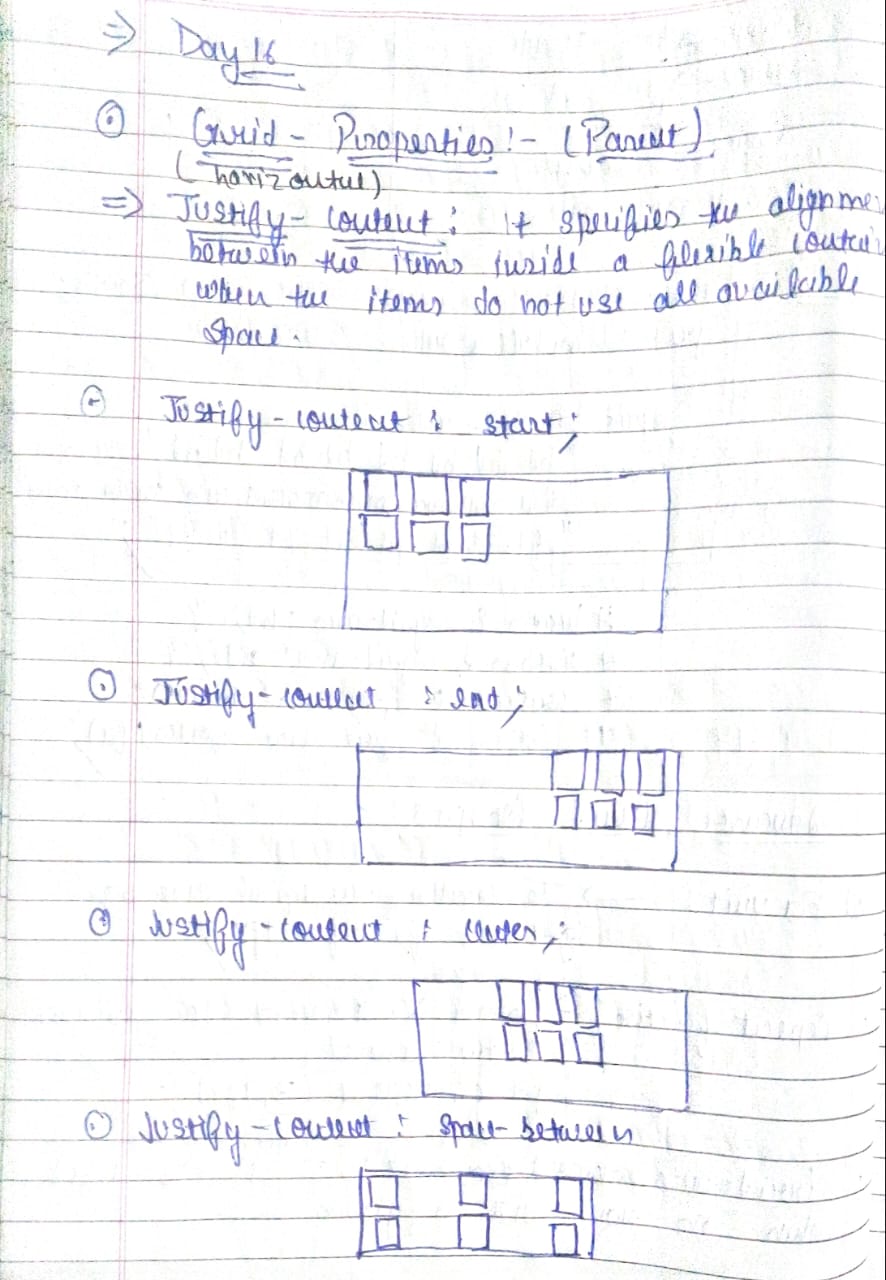 ⇒ Day 16
Grid - Properties :- (Parent)
(horizontal)
⇒ Justify-content : It specifies the alignme
between the items inside a flexible contai
when the items do not use all available
space.
Justify-content : start;
Justify-content : end;
Justify-content : center;
Justify-content : space-between